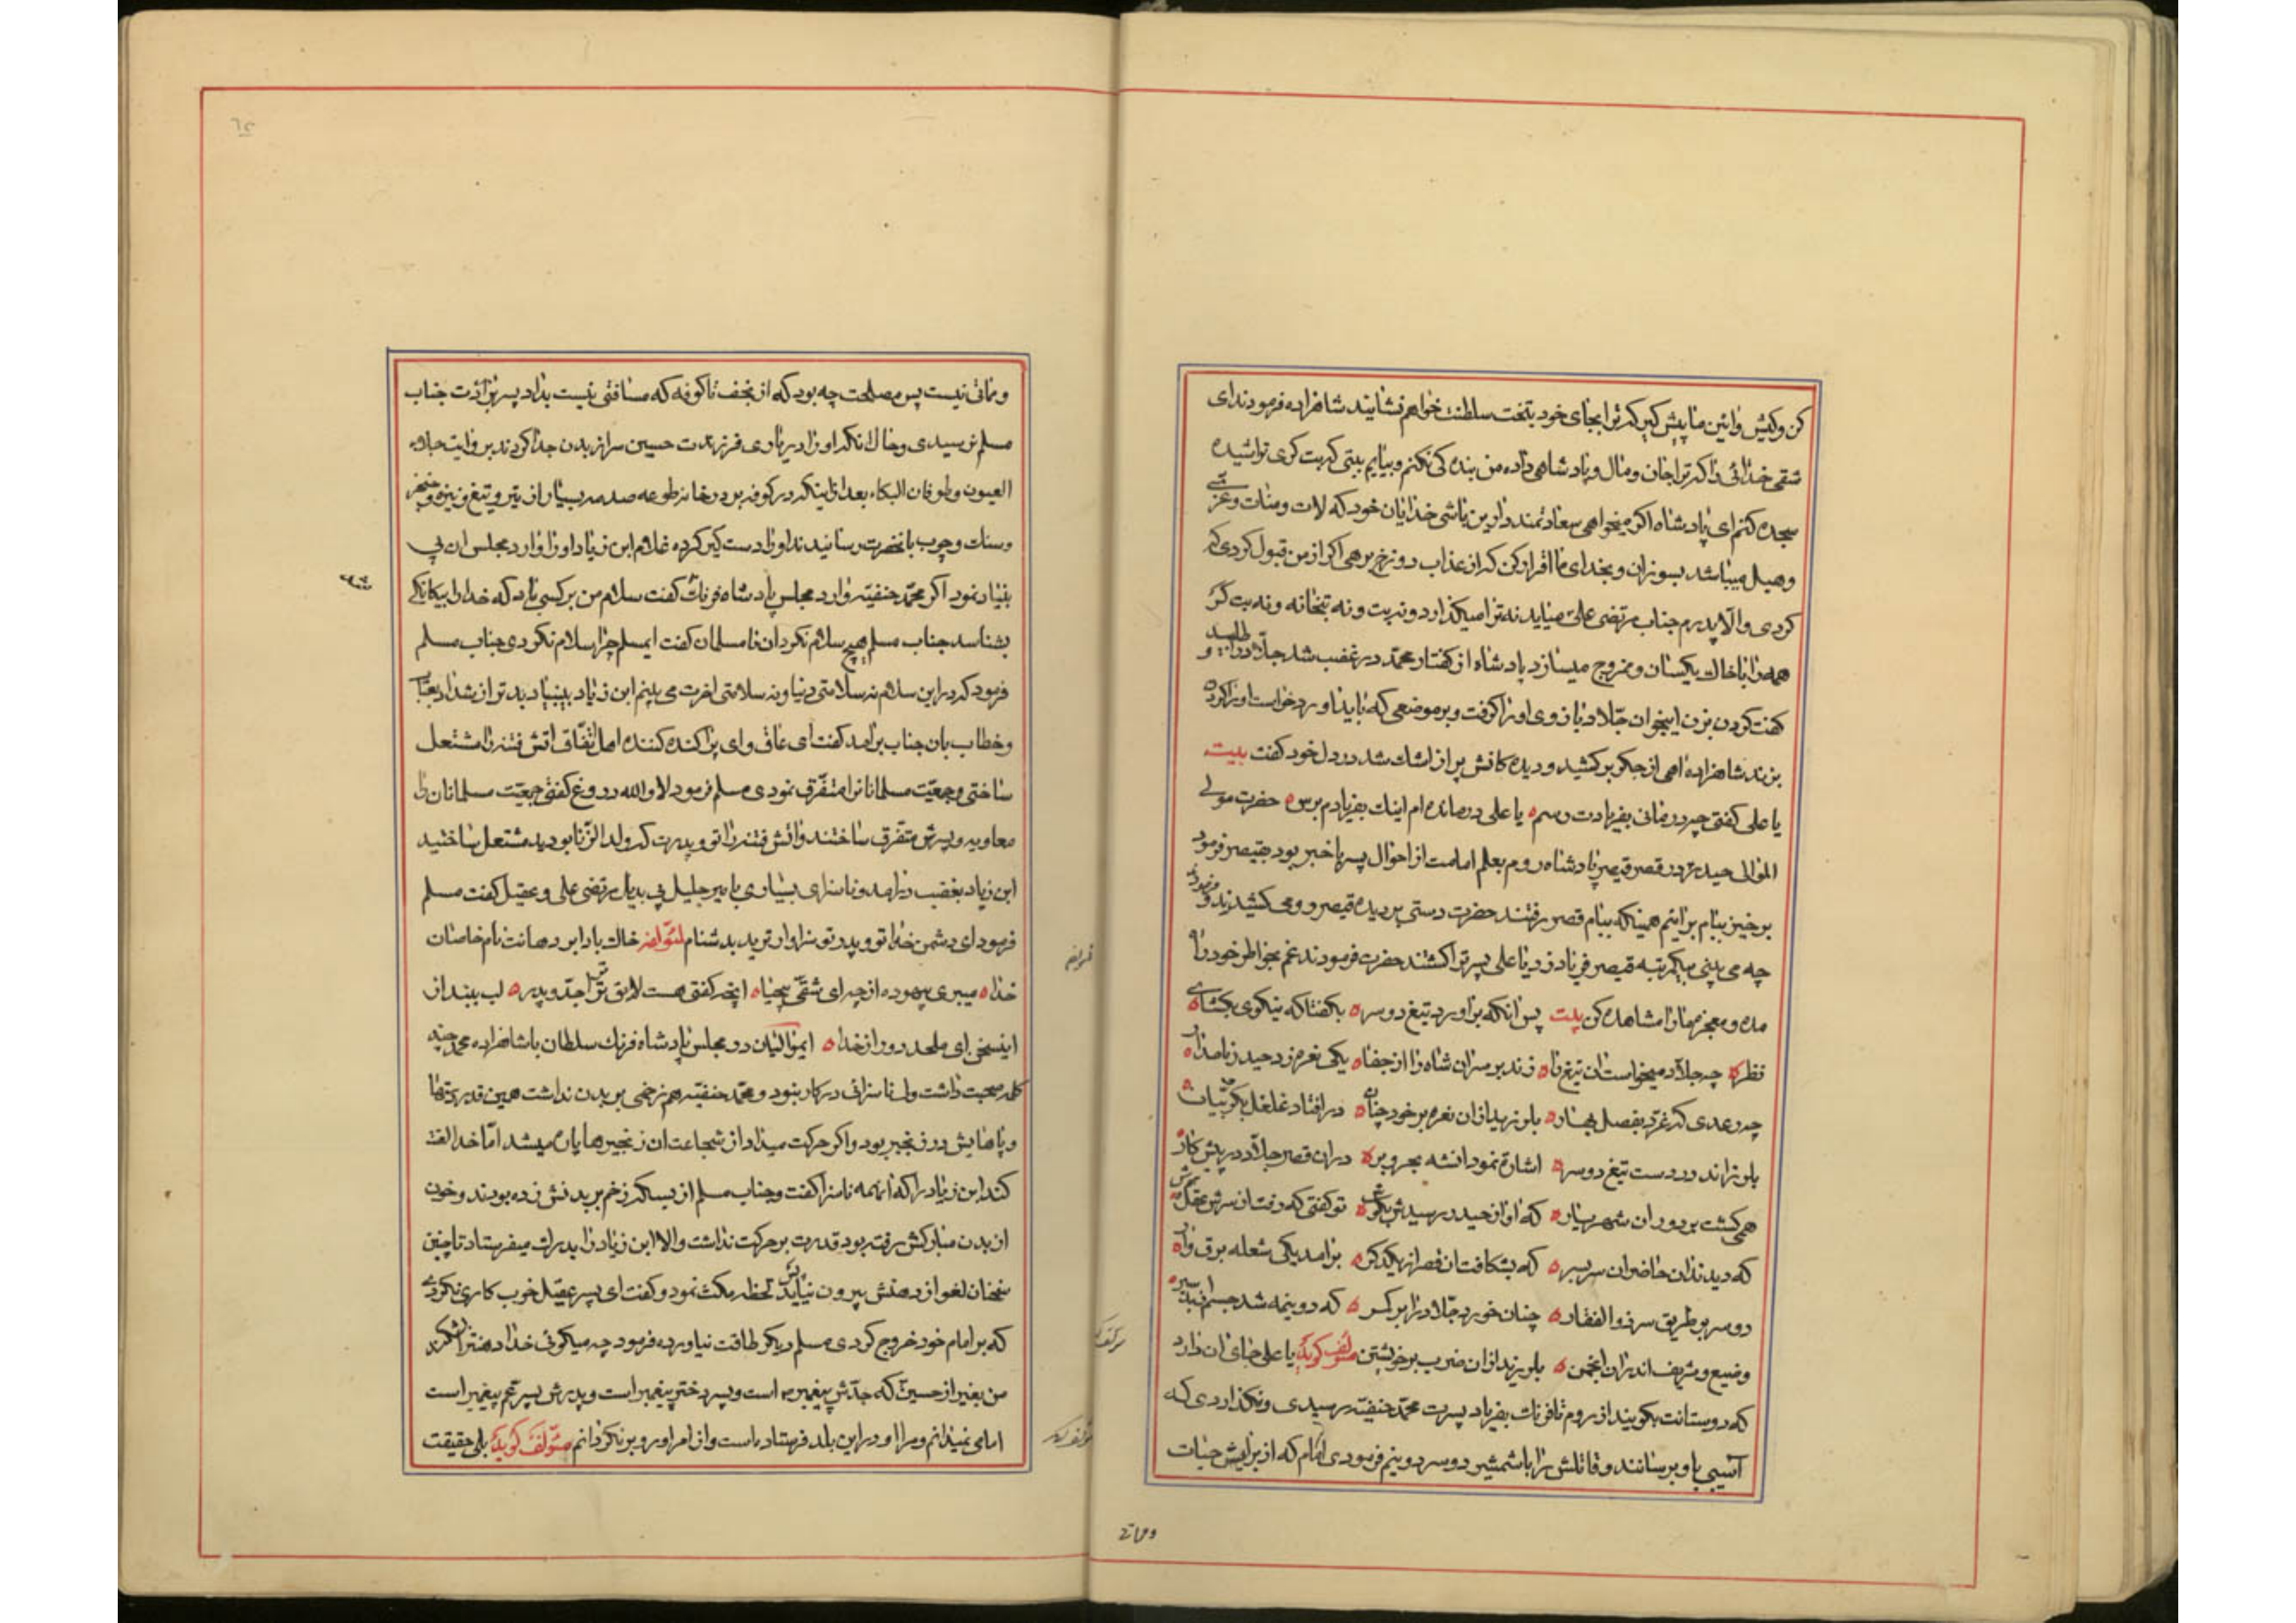 کن وکیش وائین ما پیش کیر که ترا بجای خود بتخت سلطنت خواهم نشانید شاهزاده فرمودند ای
شقی خدائی را که ترا جان و مال و پادشاهی داده من بندکی نکنم و بیایم بتی که بت کری تراشیده
سجده کنم ای پادشاه اکر میخواهی سعادتمند دارین باشی خدایان خود که لات و منات و عزی
و هبل میباشد بسوزان و بخدای ما اقرار کن که از عذاب دوزخ برهی اکر از من قبول کردی که
کردی والا پدرم جناب مرتضی علی میاید نه ترا میکذارد و نه بت و نه بتخانه و نه بت کر
همه را با خاک یکسان و ممزوج میسازد پادشاه از کفتار محمد در غضب شد جلاد را طلبید و
کفت کردن بزن اینجوان جلاد بازوی او را کرفت و بر موضعی که باید اورد خواست او را کردن
بزند شاهزاده اهی از جکر برکشید و دیده کانش پر از اشک شد در دل خود کفت بیت
یا علی کفتی چه درمانی بفریادت رسم ه یا علی درمانده ام اینک بفریادم برس ه حضرت مولی
الموالی حیدر در قصر قیصر پادشاه روم بعلم امامت از احوال پسر با خبر بود بقیصر فرمود
برخیز ببام برائیم همینکه ببام قصر رفتند حضرت دستی بر دیده قیصر رومی کشیدند و فرمودند
چه می بینی یکمرتبه قیصر فریاد زد یا علی پسر ترا کشتند حضرت فرمودند غم بخاطر خود راه
مده و معجز مهانرا مشاهده کن بیت پس انکه براورد تیغ دو سر ه بکفتا که نیکوی بکشای
نظر ه چه جلاد میخواست ان تیغ را ه زند بر سر ان شاه را از جفا ه یکی نعره زد حیدر نامدار ه
چه رعدی که غرد بفصل بهار ه بلرزید از ان نعره بر خود چنان ه در افتاد غلغل بکروبیان ه
بلرزاند در دست تیغ دو سر ه اشارة نمود انشه بحر و بر ه دران قصر جلاد در پیش کار
همی کشت بر دور ان شهریار ه که اواز حیدر رسیدش بکوش ه تو کفتی که رفت از سرش عقل و هوش
که دیدند ان حاضران سر بسر ه که بشکافت ان قصر از یکدکر ه برامد یکی شعله برق وار ه
دو سر بر طریق سر ذوالفقار ه چنان خورد جلاد را بر کمر ه که دو نیمه شد جسم
وضیع و شریف اندران انجمن ه بلرزید از ان ضرب بر خویشتن مؤلف کوید یا علی جای ان دارد
که دوستانت بکویند از روم تا فرنک بفریاد پسرت محمد حنفیه رسیدی و نکذاردی که
آسیبی باو برسانند و قاتلش را با شمشیر دو سر دو نیم فرمودی امام که از برایش حیات
ومماتی
ومماتی نیست پس مصلحت چه بود که از نجف تا کوفه که مسافتی نیست بداد پسر برادرت جناب
مسلم نرسیدی و حال انکه او را در یاری فرزندت حسین سر از بدن جدا کردند بروایت جلاء
العیون و طوفان البکاء بعد از اینکه در کوفه بر در خانه طوعه صدمه بسیار از تیر و تیغ و نیزه و خنجر
وسنک و چوب بانحضرت رسانیدند او را دست کیر کرده غلام ابن زیاد او را وارد مجلس ان بی
بنیاد نمود اکر محمد حنفیه وارد مجلس پادشاه فرنک کفت سلام من بر کسی باد که خدا را بیکانکی
بشناسد جناب مسلم هیچ سلام نکرد ان نامسلمان کفت ایمسلم چرا سلام نکردی جناب مسلم
فرمود که در این سلام نه سلامتی دنیا و نه سلامتی اخرت می بینم ابن زیاد بد بنیاد بدتر از شداد بعتاب
وخطاب بان جناب برامد کفت ای عاق و ای پراکنده کننده اهل اتفاق اتش فتنه را مشتعل
ساختی و جمعیت مسلمانانرا متفرق نمودی مسلم فرمود لا والله دروغ کفتی جمعیت مسلمانان را
معاویه و پسرش متفرق ساختند و اتش فتنه را تو و پدرت که ولد الزنا بودید مشتعل ساختید
ابن زیاد بغضب درامد و ناسزای بسیاری بامیر جلیل بی بدیل مرتضی علی و عقیل کفت مسلم
فرمود ای دشمن خدا تو و پدر تو سزاوارترید بدشنام لمؤلفه خاک بادا بر دهانت نام خاصان
خدا ه میبری بیهوده از چه ای شقی بیحیا ه انچه کفتی هست لایق بر تو جد و پدر ه لب ببند از
اینسخن ای ملحد دور از خدا ه ایموالیان در مجلس پادشاه فرنک سلطان با شاهزاده محمد حنفیه
کله صحبت داشت ولی ناسزائی در کار نبود و محمد حنفیه هم زخمی بر بدن نداشت همین قدر دستها
وپاهایش در زنجیر بود و اکر حرکت میداد از شجاعت ان زنجیرها پاره میشد اما خدا لعنت
کند ابن زیاد را که انهمه ناسزا کفت و جناب مسلم از بسکه زخم بر بدنش زده بودند و خون
از بدن مبارکش رفته بود قدرت بر حرکت نداشت والا ابن زیاد را بدرک میفرستاد تا چنین
سخنان لغو از دهنش بیرون نیاید لحظه مکث نمود و کفت ای پسر عقیل خوب کاری نکردی
که بر امام خود خروج کردی مسلم دیکر طاقت نیاورده فرمود چه میکوئی خدا دهنترا بشکند
من بغیر از حسین که جدش پیغمبر است و پسر دختر پیغمبر است و پدرش پسر عم پیغمبر است
امامی نمیدانم و مرا او در این بلد فرستاده است و از امر او رو بر نکردانم مؤلف کوید بلی حقیقت